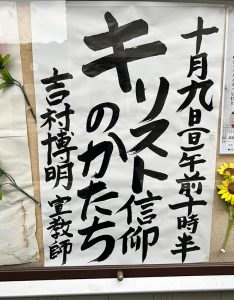 十月九日(日)午前十時半
キリスト信仰
のかたち
吉村博明 宣教師